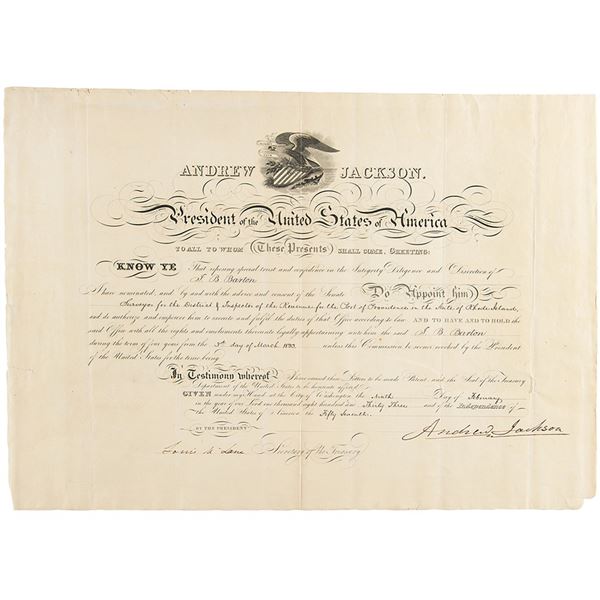 ANDREW JACKSON.
President of the United States of America
TO ALL TO WHOM These Presents SHALL COME, GREETING:
KNOW YE That reposing special trust and confidence in the Integrity Diligence and Discretion of
B Barton
I have nominated, and by and with the advice and consent of the Senate Do Appoint him
Surveyor for the District & Inspector of the Revenue for the Port of Providence in the State of Rhode Island,
and do authorize and empower him to execute and fulfil the duties of that Office according to law AND TO HAVE AND TO HOLD the
said Office with all the rights and emoluments thereunto legally appertaining unto him the said B Barton
during the term of four years from the 3d day of March 1833. unless this Commission be sooner revoked by the President
of the United States for the time being
In Testimony whereof I have caused these Letters to be made Patent, and the Seal of the Treasury
Department of the United States to be hereunto affixed
GIVEN under my Hand at the City of Washington the Ninth Day of February
in the year of our Lord one thousand eight hundred and Thirty Three and of the Independence of
the United States of America the Fifty Seventh.
BY THE PRESIDENT
Andrew Jackson
Louis McLane Secretary of the Treasury.